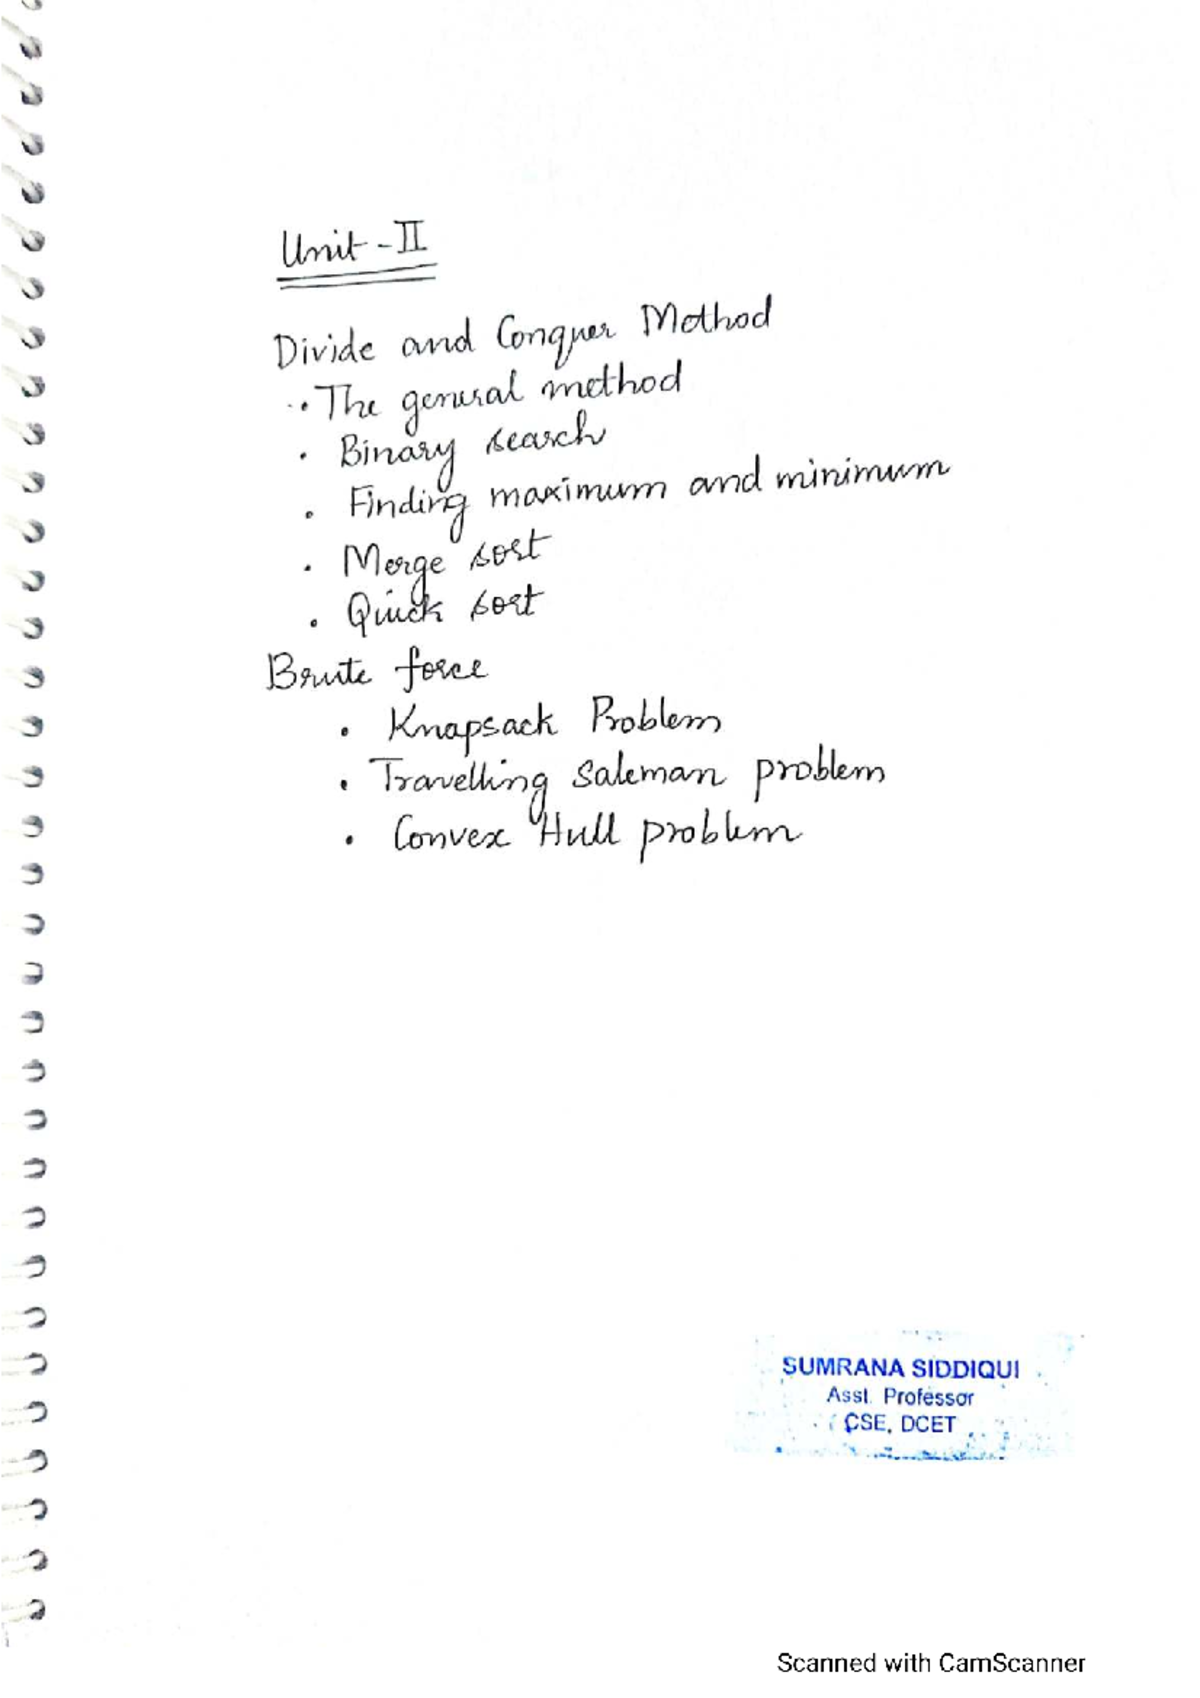 Unit - II
Divide and Conquer Method
· The general method
· Binary search
· Finding maximum and minimum
· Merge sort
· Quick sort
Brute force
· Knapsack Problem
· Travelling Saleman problem
· Convex Hull problem
SUMRANA SIDDIQUI
Asst. Professor
CSE, DCET
Scanned with CamScanner